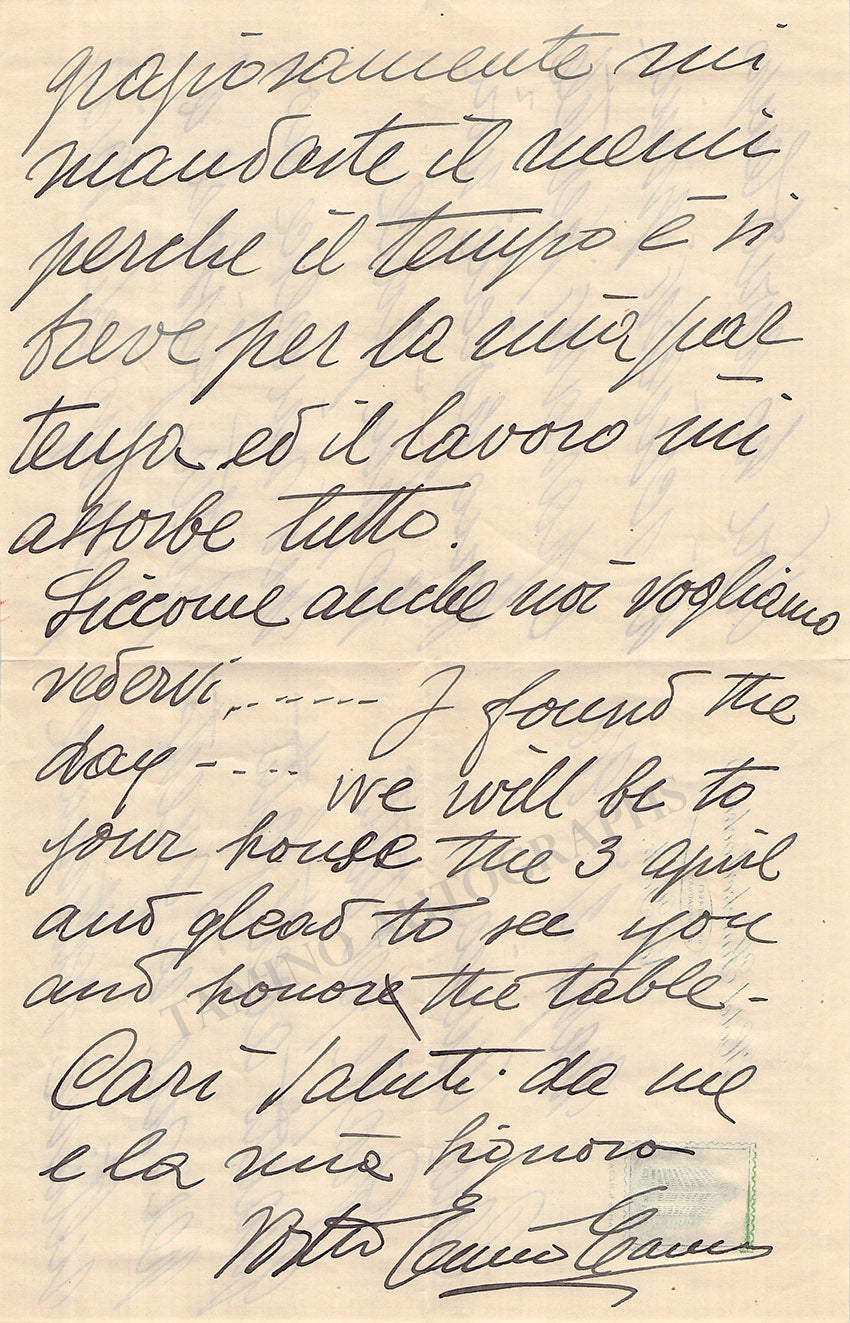 graziosamente mi
mandaste il menu
perche il tempo è si
breve per la mia par
tenza ed il lavoro mi
assorbe tutto.
Siccome anche noi vogliamo
vedervi,------ I found the
day ---- we will be to
your house the 3 april
and glead to see you
and honor the table-
Cari saluti da me
e la mia signora
Vostro Enrico Caruso
TAMINO AUTOGRAPHS